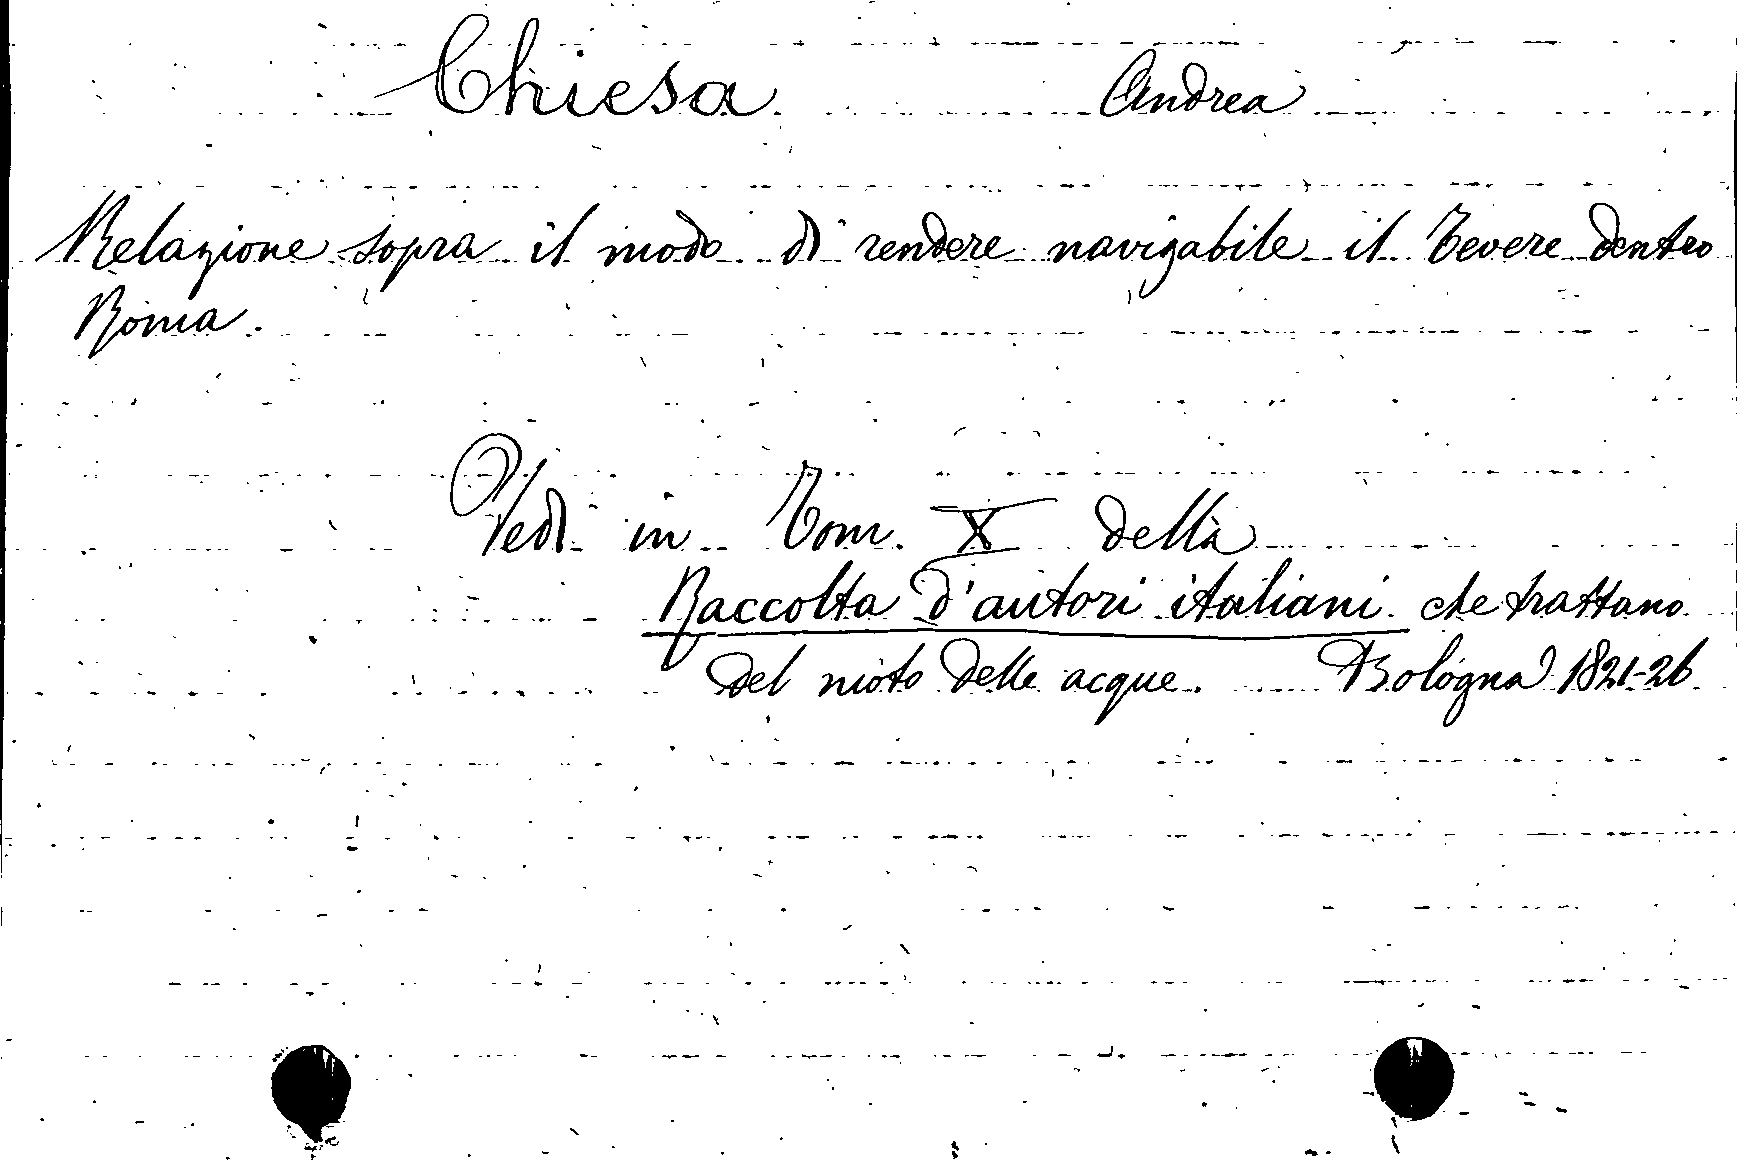 Chiesa Andrea
Relazione sopra il modo di rendere navigabile il Tevere dentro
Roma.
Vedi in Tom. X della
Raccolta d'autori italiani che trattano
del moto delle acque. Bologna 1821-26